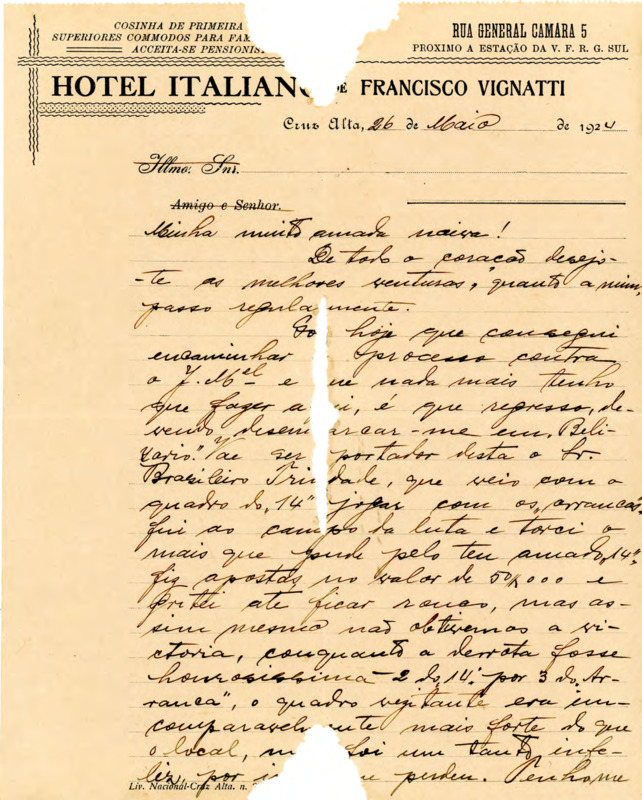 COSINHA DE PRIMEIRA
SUPERIORES COMMODOS PARA FAM
ACCEITA-SE PENSIONIS
RUA GENERAL CAMARA 5
PROXIMO A ESTAÇÃO DA V. F. R. G. SUL
HOTEL ITALIANO DE FRANCISCO VIGNATTI
Cruz Alta, 26 de Maio de 1924
Illmo. Snr.
Amigo e Senhor.
Minha muito amada noiva!
De todo o coração desejo-
-te as melhores venturas, quanto a mim,
passo regularmente.
So hoje que consegui
encaminhar processo contra
o J. Mel e ue nada mais tenho
que fazer a i, é que regresso, de-
vendo desem arcar-me em "Beli-
zario". Vae ser portador desta o Sr.
Brasileiro Trindade, que veio com o
quadro do "14" jogar com os "arranca"
fui ao campo da luta e torci o
mais que pude pelo teu amado "14".
fiz apostas no valor de 50$000 e
gritei até ficar rouco, mas as-
sim mesmo não obtivemos a vi-
ctoria, conquanto a derrota fosse
honrosissima 2 do "14" por 3 do "Ar-
ranca", o quadro visitante era in-
comparavelmente mais forte do que
o local, m foi um tanto infe-
liz, por i perdeu. Tenho me
Liv. Nacional-Cruz Alta. n.